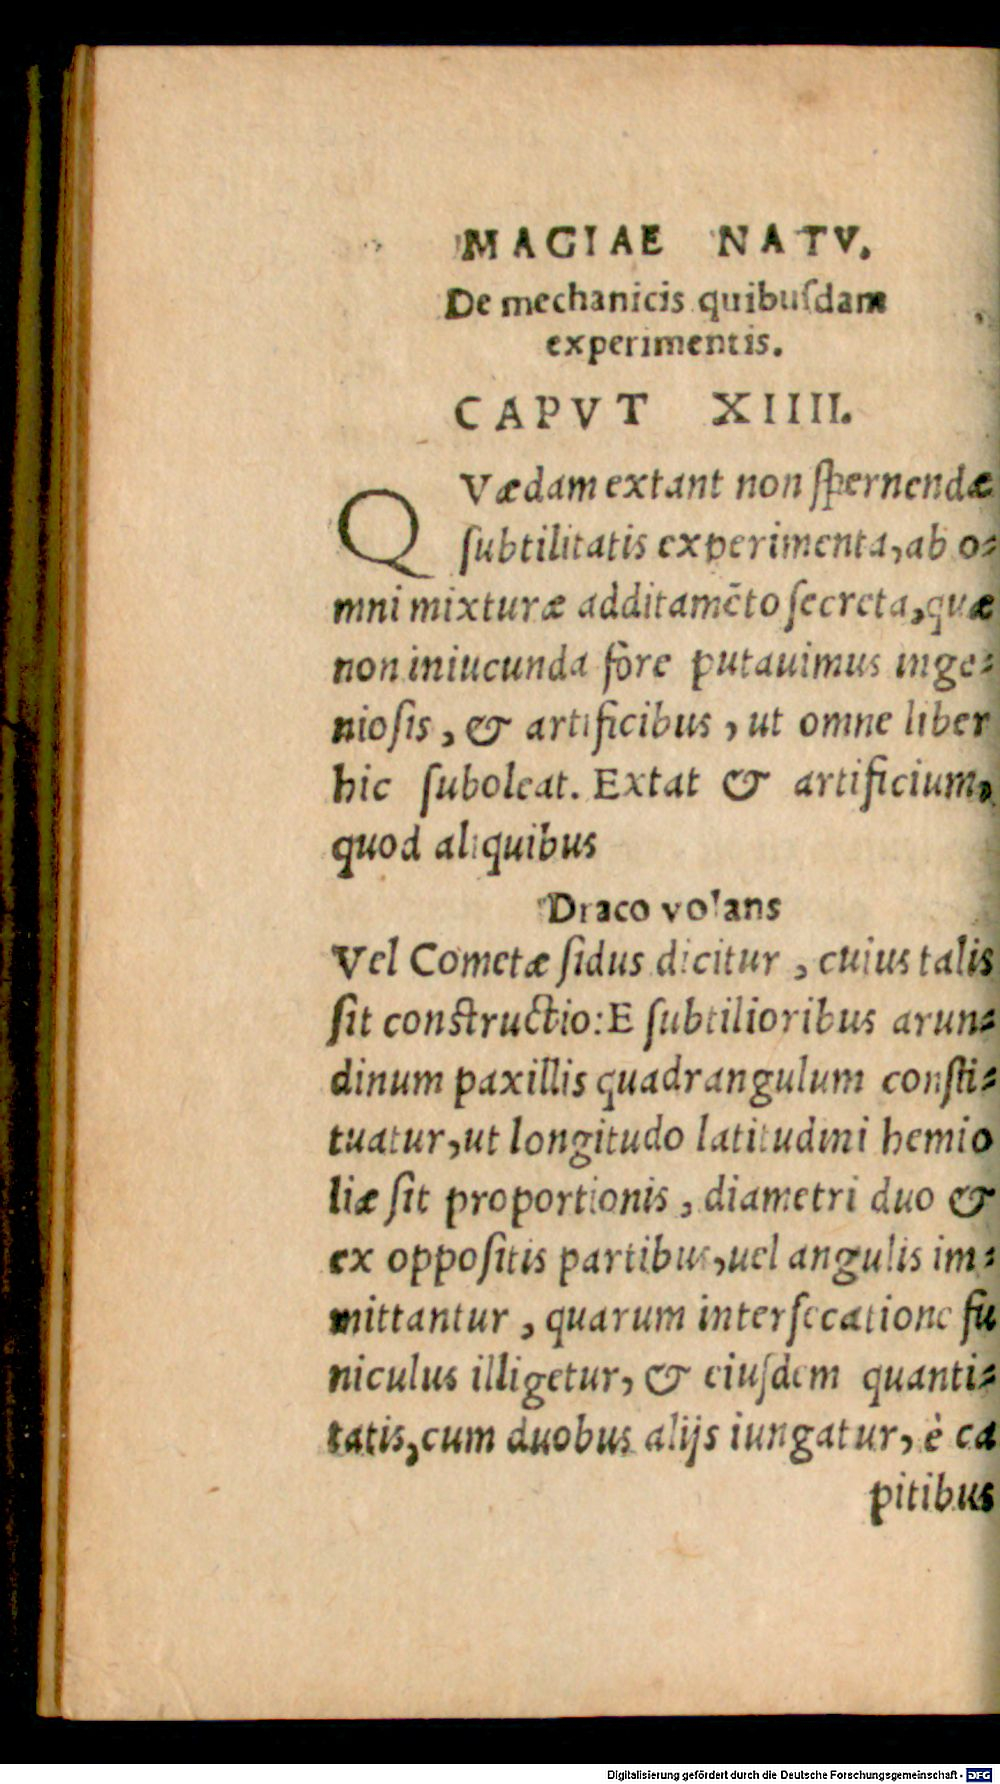 MAGIAE NATV.
De mechanicis quibuſdam
experimentis.
CAPVT XIIII.
QVædam extant non ſpernendæ
ſubtilitatis experimenta, ab o-
mni mixturæ additamẽto ſecreta, quæ
non iniucunda fore putauimus inge-
nioſis, & artificibus, ut omne liber
hic ſuboleat. Extat & artificium,
quod aliquibus
Draco volans
Vel Cometæ ſidus dicitur, cuius talis
ſit constructio: E ſubtilioribus arun-
dinum paxillis quadrangulum conſti-
tuatur, ut longitudo latitudini hemio
liæ ſit proportionis, diametri duo &
ex oppoſitis partibus, uel angulis im-
mittantur, quarum interſecatione fu
niculus illigetur, & eiuſdem quanti-
tatis, cum duobus alijs iungatur, è ca
pitibus
Digitalisierung gefördert durch die Deutsche Forschungsgemeinschaft - DFG